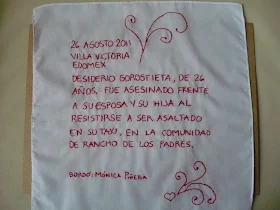 26 AGOSTO 2011
VILLA VICTORIA
EDOMEX
DESIDERIO GOROSTIETA, DE 26
AÑOS, FUE ASESINADO FRENTE
A SU ESPOSA Y SU HIJA AL
RESISTIRSE A SER ASALTADO
EN SU TAXI, EN LA COMUNIDAD
DE RANCHO DE LOS PADRES.
BORDÓ: MÓNICA PIÑERA